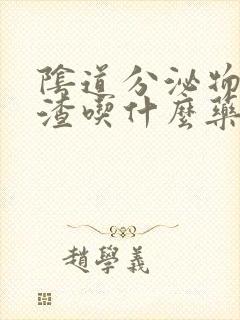 陰道分泌物
渣喫什麼藥
趙學義